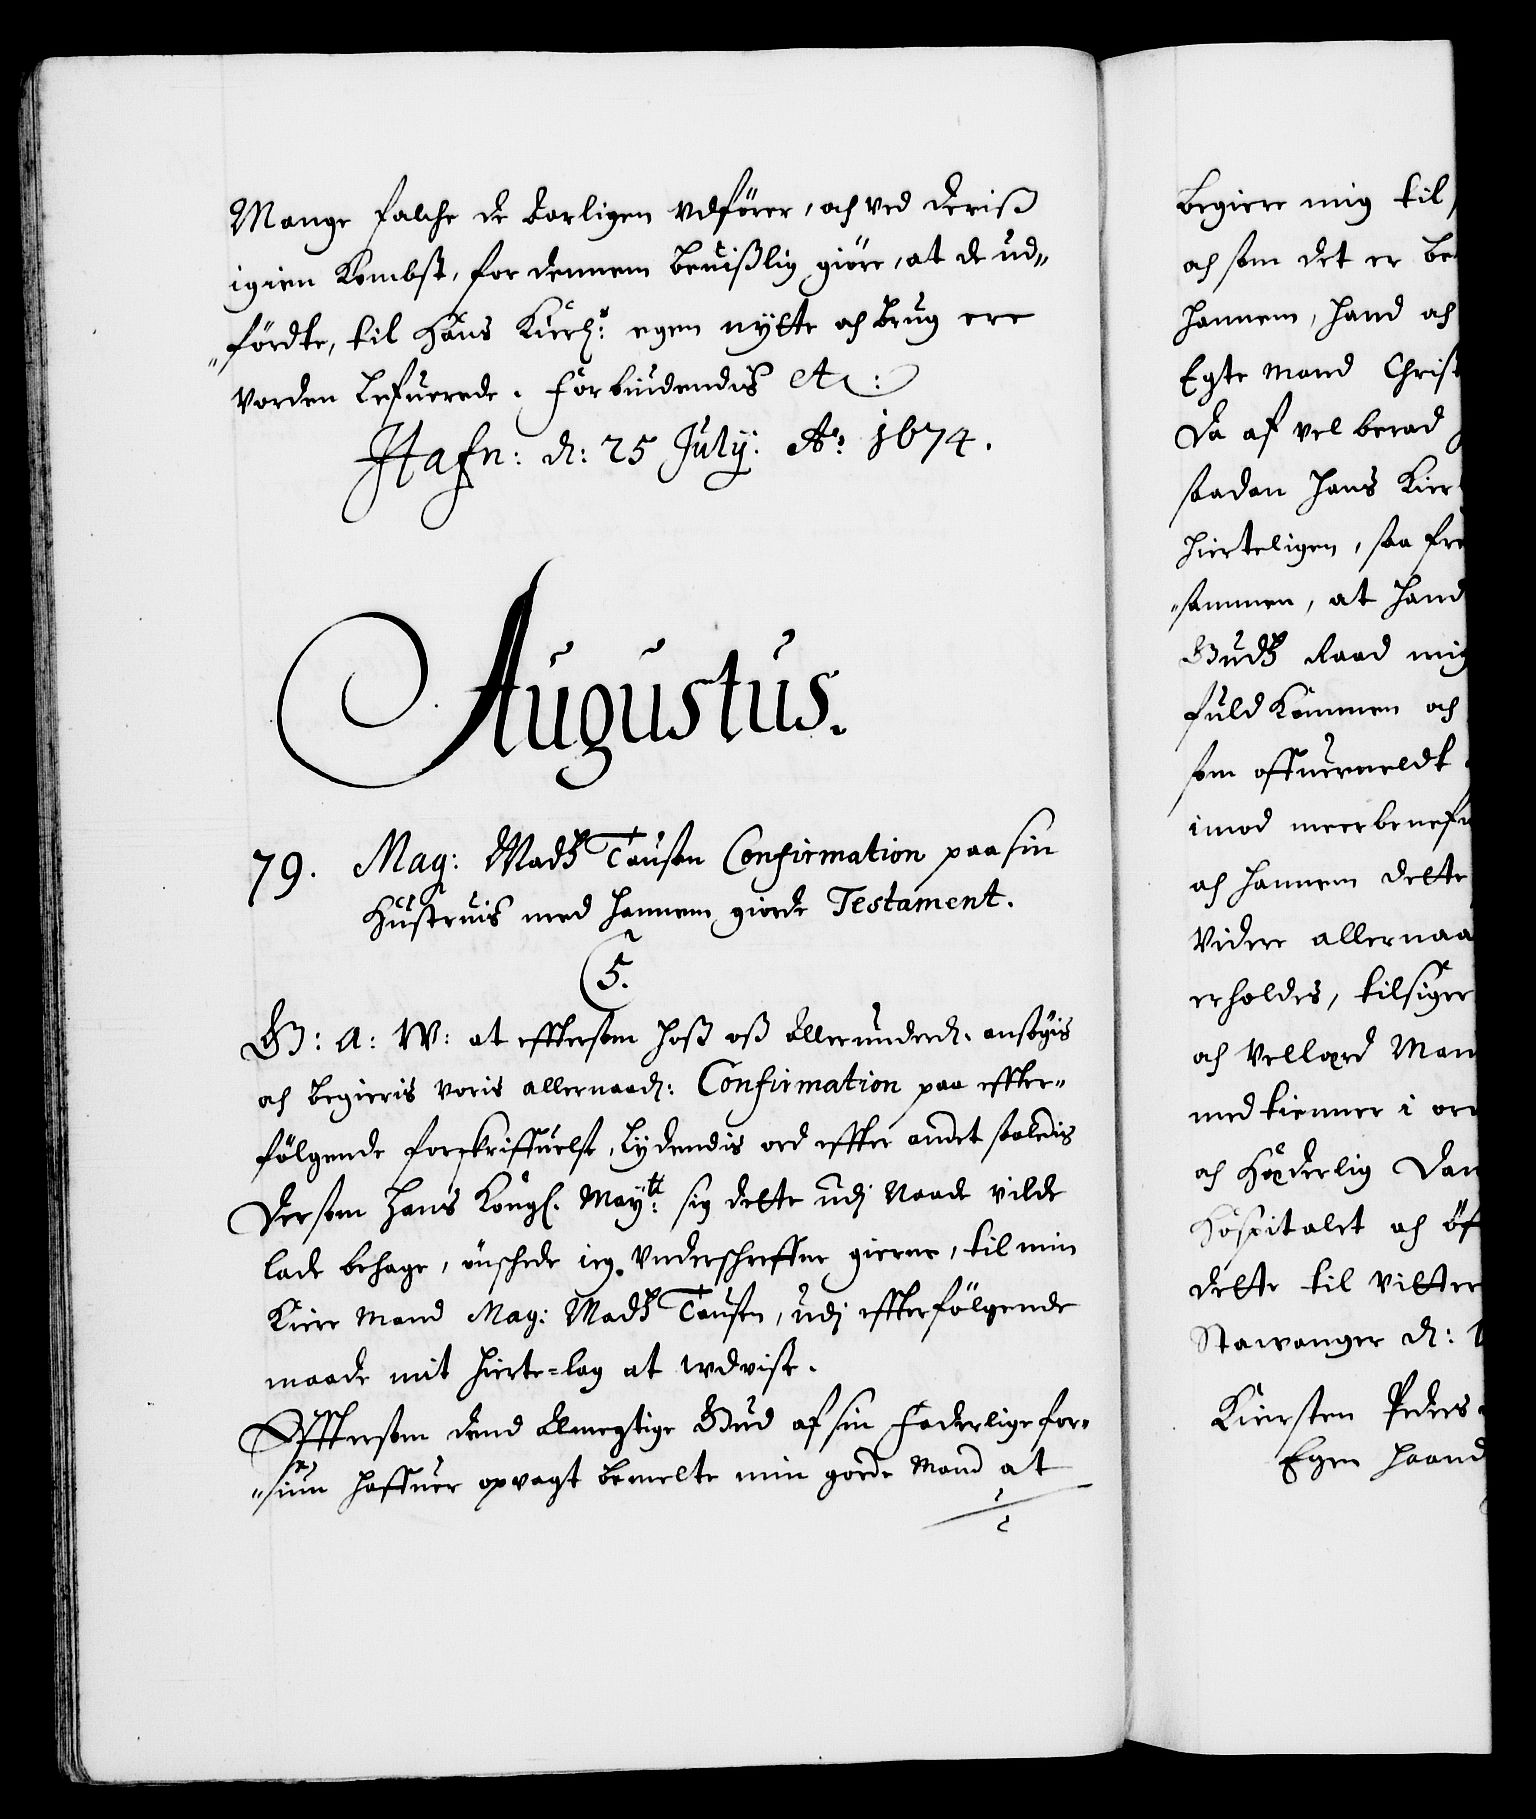 Mange falche de Aarligen udfører, och ved deriß
igien Kombst, for dennem beuißlig giöre, at de ud„
„fördte, til Hans Kierl: egen nytte och brug ere
vorden lefuerede. Forbiudendis etc:
Hafn: d: 25 July. Ao: 1674.
Augustus.
79. Mag: Madtz Tausen Confirmation paa sin
Hustruis med hannem giorde Testament.
C5.
G: A: W: at effttersom hoß oß Allerunderd: ansögis
och begieris voris allernaad: Confirmation paa effter„
fölgende forskriffuelse, lydendis ord effter andet saaledis
Dersom Hans Kongl. Maytt: sig dette udj Naade vilde
lade behage, önschede ieg underschreffne gierne, til min
Kiere Mand Mag: Madtz Tausen, udj effterfölgende
maade mit hierte=lag at wdvise.
Effttersom dend Almegtige Gud af sin Faderlige for„
„siun haffuer opvagt bemelte min goede Mand at
begiere mig til
och som det er be
hannem, hand och
Egte Mand Christ
Da af vel berad
saadan hans Kier
hierteligen, saa fre
„sammen, at hand
Gudtz Raad mig
fuldkommen och
som offuermeldt
imod meerbenefn
och hannem dette
Videre allernaa
erholdes, tilsiger
och Vellærd Man
medkienner i ord
och Hæderlig Dan
Hospitalet och öf
dette til vitter
Stawanger d: 1
Kiersten Peders
Egen haand